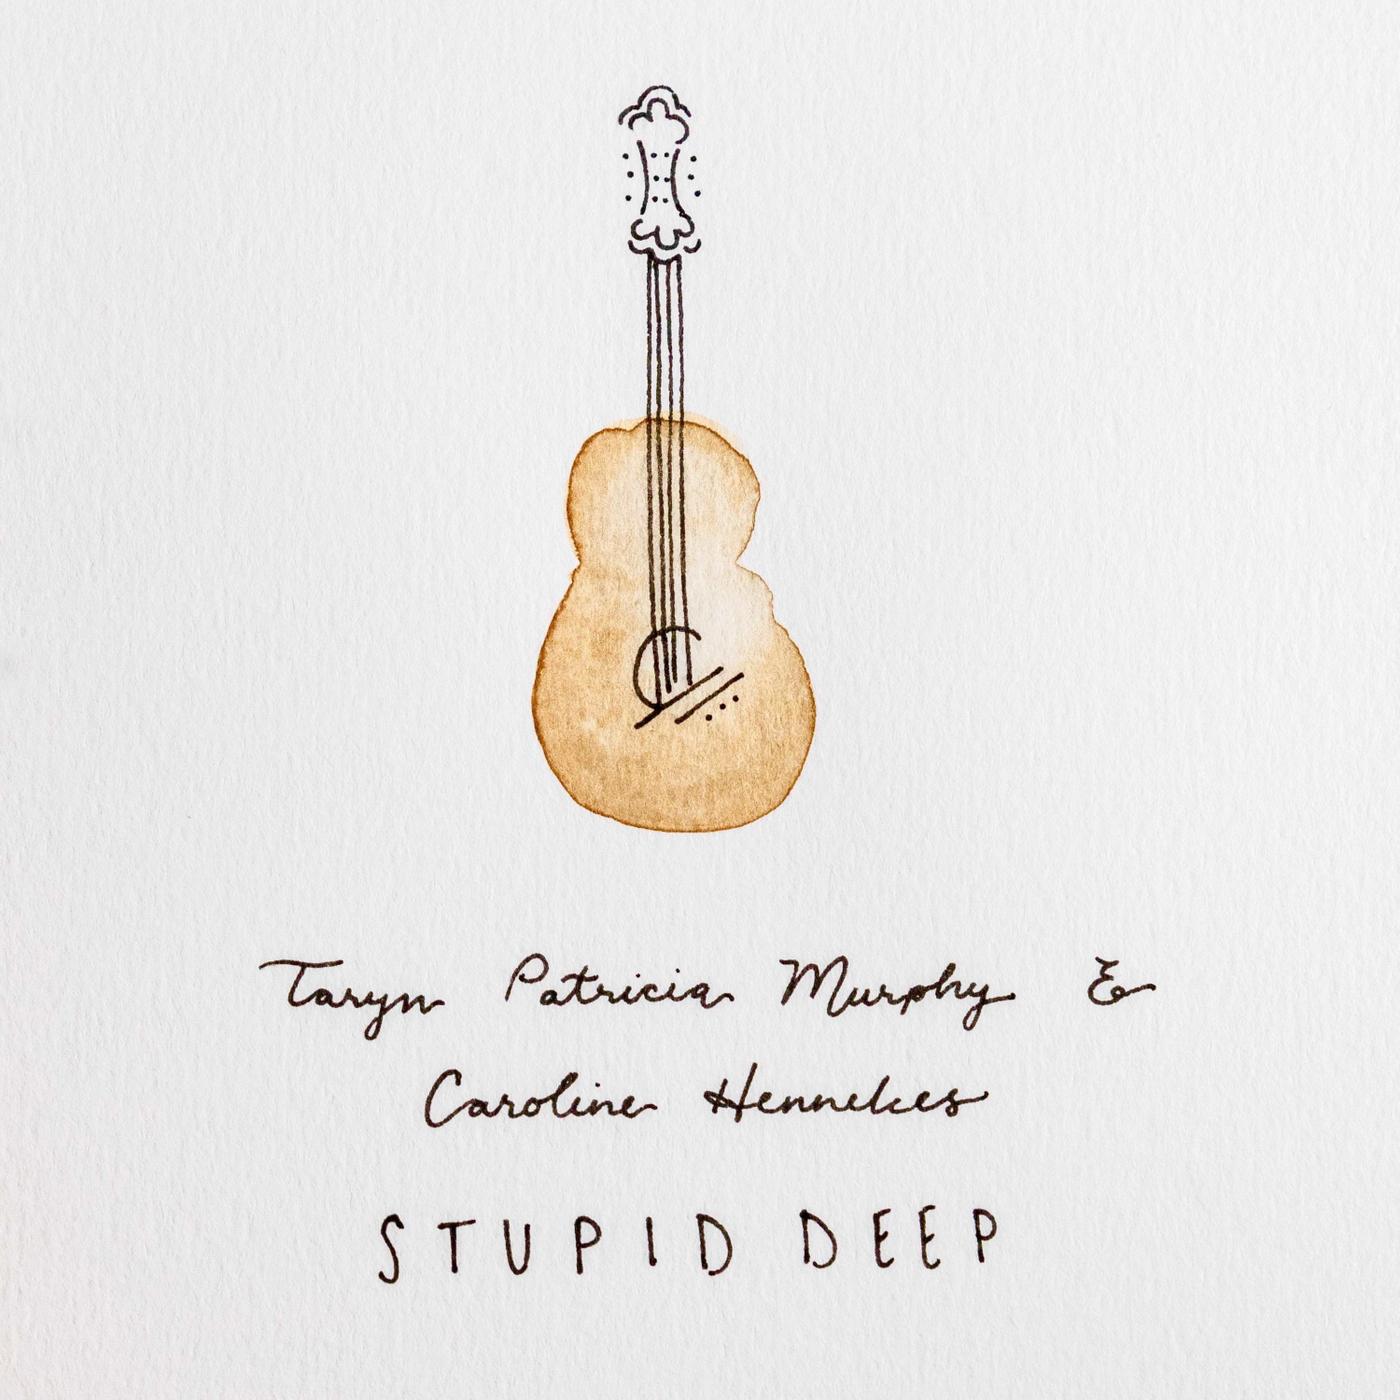 Taryn Patricia Murphy &
Caroline Hennekes
STUPID DEEP